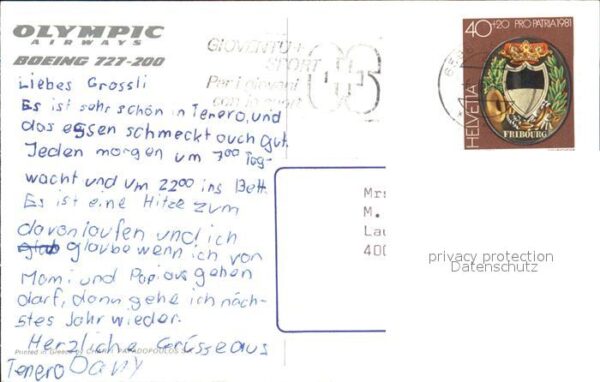 OLYMPIC
AIRWAYS
BOEING 727-200
Liebes Grossli
Es ist sehr schön in Tenero, und
das essen schmeckt auch gut.
Jeden morgen um 7 00 Tag-
wacht und um 22 00 ins Bett.
Es ist eine Hitze zum
davonlaufen und ich
glaube wenn ich von
Mami und Papi aus gehen
darf, dann gehe ich näch-
stes Jahr wieder.
Herzliche Grüsse aus
Tenero Dany
Printed in Greece by PAPADOPOULOS
GIOVENTÙ+
SPORT
Per i giovani
con lo sport
40+20 PRO PATRIA 1981
HELVETIA
FRIBOURG
Mrs
M.
Lau
400
privacy protection
Datenschutz